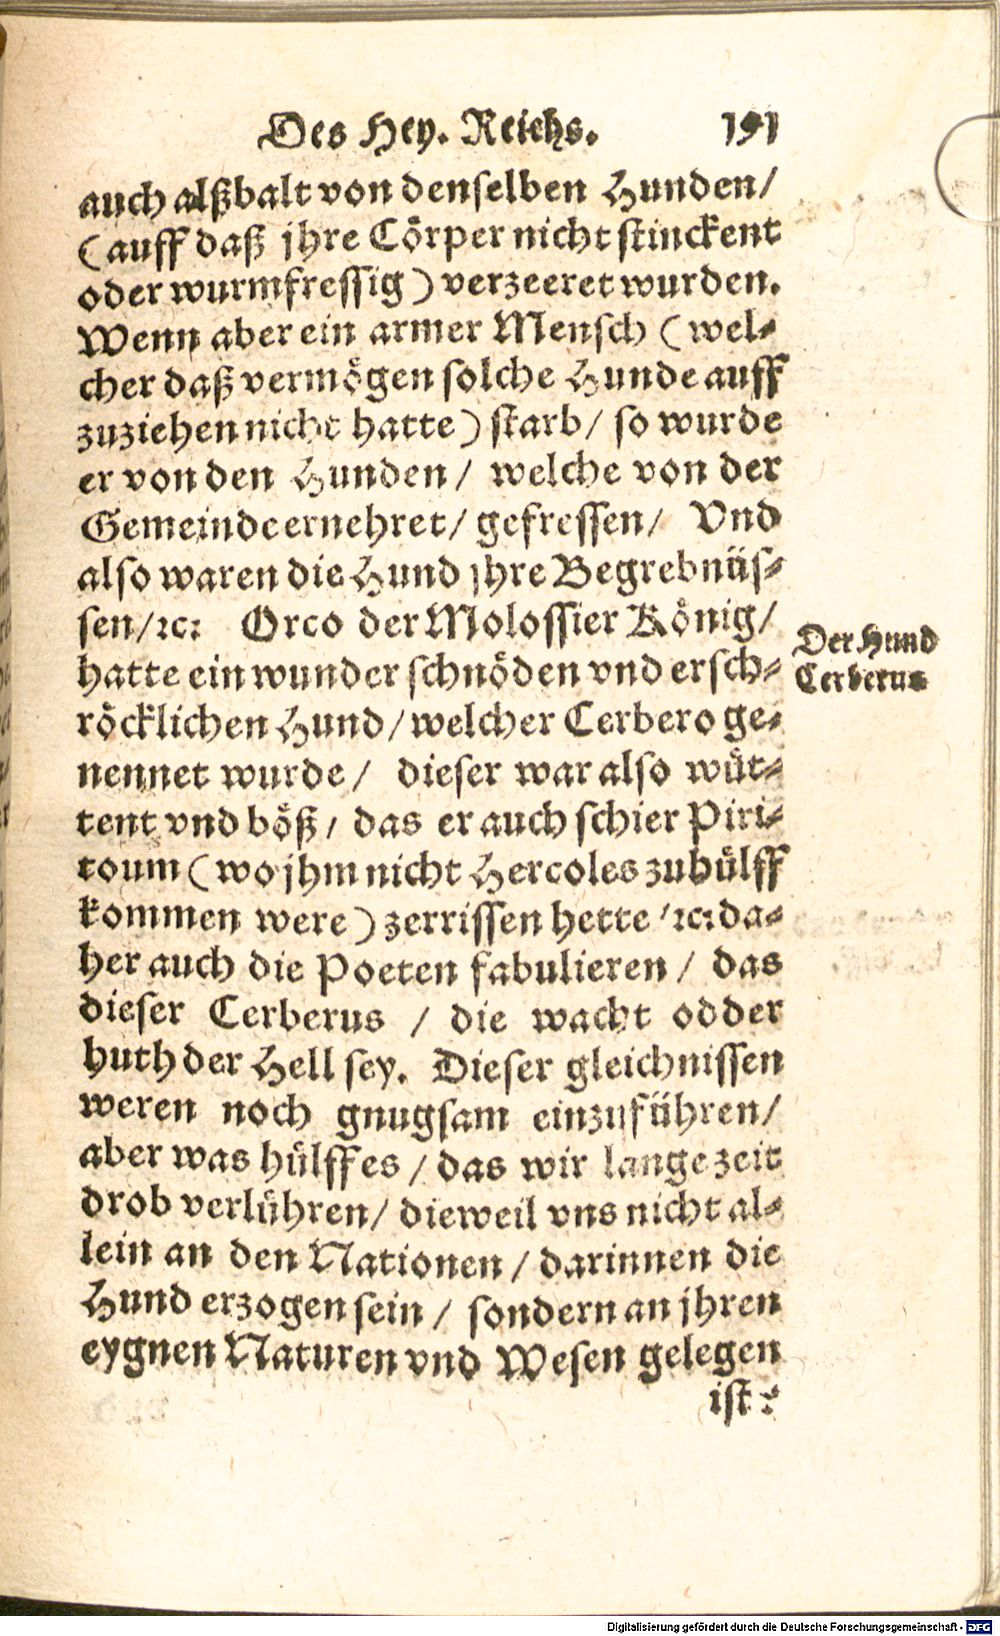 Des Hey. Reichs. 191
auch alßbalt von denselben Hunden/
(auff daß jhre Cörper nicht stinckent
oder wurmfressig) verzeeret wurden.
Wenn aber ein armer Mensch (wel-
cher daß vermögen solche Hunde auff
zuziehen nicht hatte) starb/ so wurde
er von den Hunden/ welche von der
Gemeinde ernehret/ gefressen/ Vnd
also waren die Hund jhre Begrebnüs-
sen/ ꝛc: Orco der Molossier König/
hatte ein wunder schnöden vnd ersch-
röcklichen Hund/ welcher Cerbero ge-
nennet wurde/ dieser war also wüt-
tent vnd böß/ das er auch schier Piri-
toum (wo jhm nicht Hercoles zuhülff
kommen were) zerrissen hette/ ꝛc: da-
her auch die Poeten fabulieren/ das
dieser Cerberus / die wacht odder
huth der Hell sey. Dieser gleichnissen
weren noch gnugsam einzuführen/
aber was hülff es / das wir lange zeit
drob verlühren/ dieweil vns nicht al-
lein an den Nationen / darinnen die
Hund erzogen sein / sondern an jhren
eygnen Naturen vnd Wesen gelegen
ist:
Der Hund
Cerberus
Digitalisierung gefördert durch die Deutsche Forschungsgemeinschaft - DFG